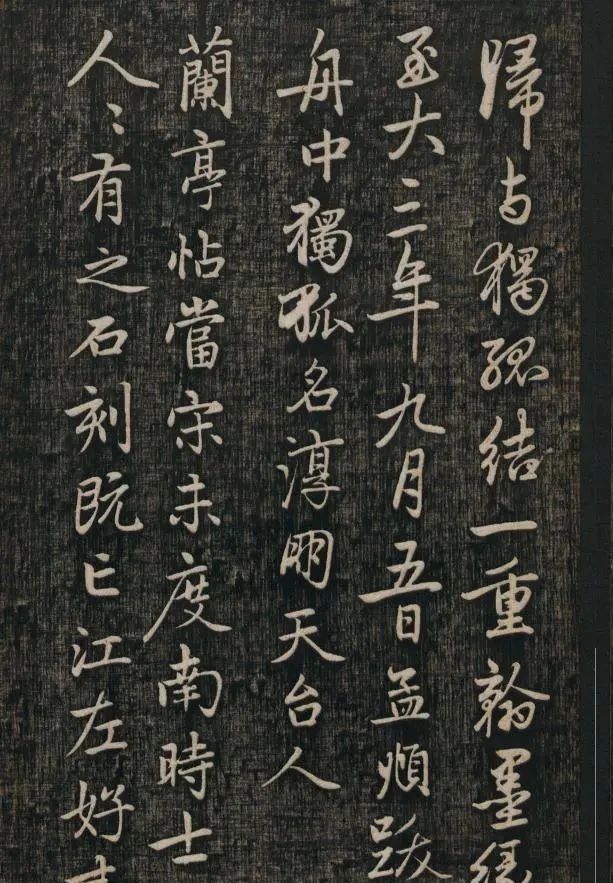 歸与獨孤結一重翰墨縁
至大三年九月五日孟頫跋
舟中獨孤名淳朋天台人
蘭亭帖當宋未度南時士
人〻有之石刻既亡江左好